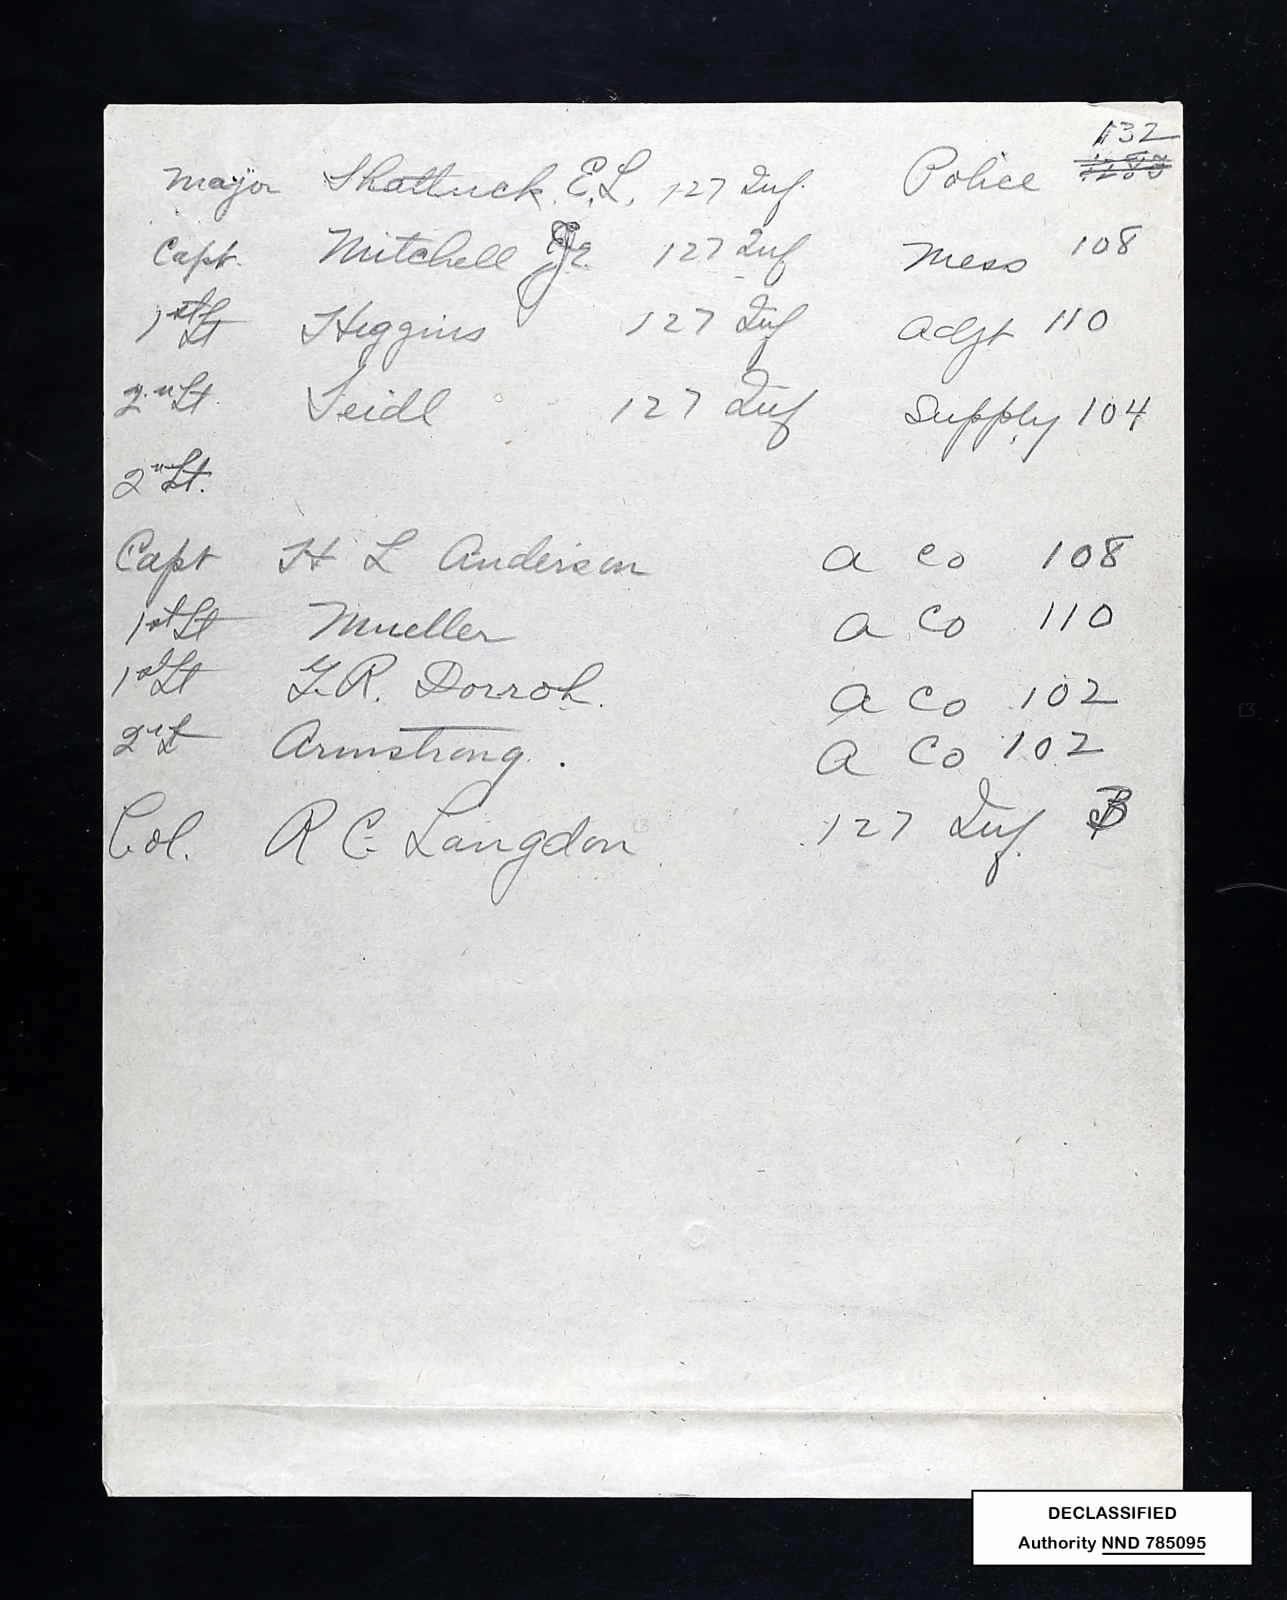 132
Major Shattuck, E.L, 127 Inf. Police
Capt. Mitchell 127 Inf Mess 108
1st Lt Higgins 127 Inf Adjt 110
2n Lt. Seidl 127 Inf Supply 104
2n Lt.
Capt H L Anderson A Co 108
1st Lt Mueller A Co 110
1st Lt G.R. Dorroh. A Co 102
2n Lt Armstrong. A Co 102
Col. R C Langdon 127 Inf. B
DECLASSIFIED
Authority NND 785095